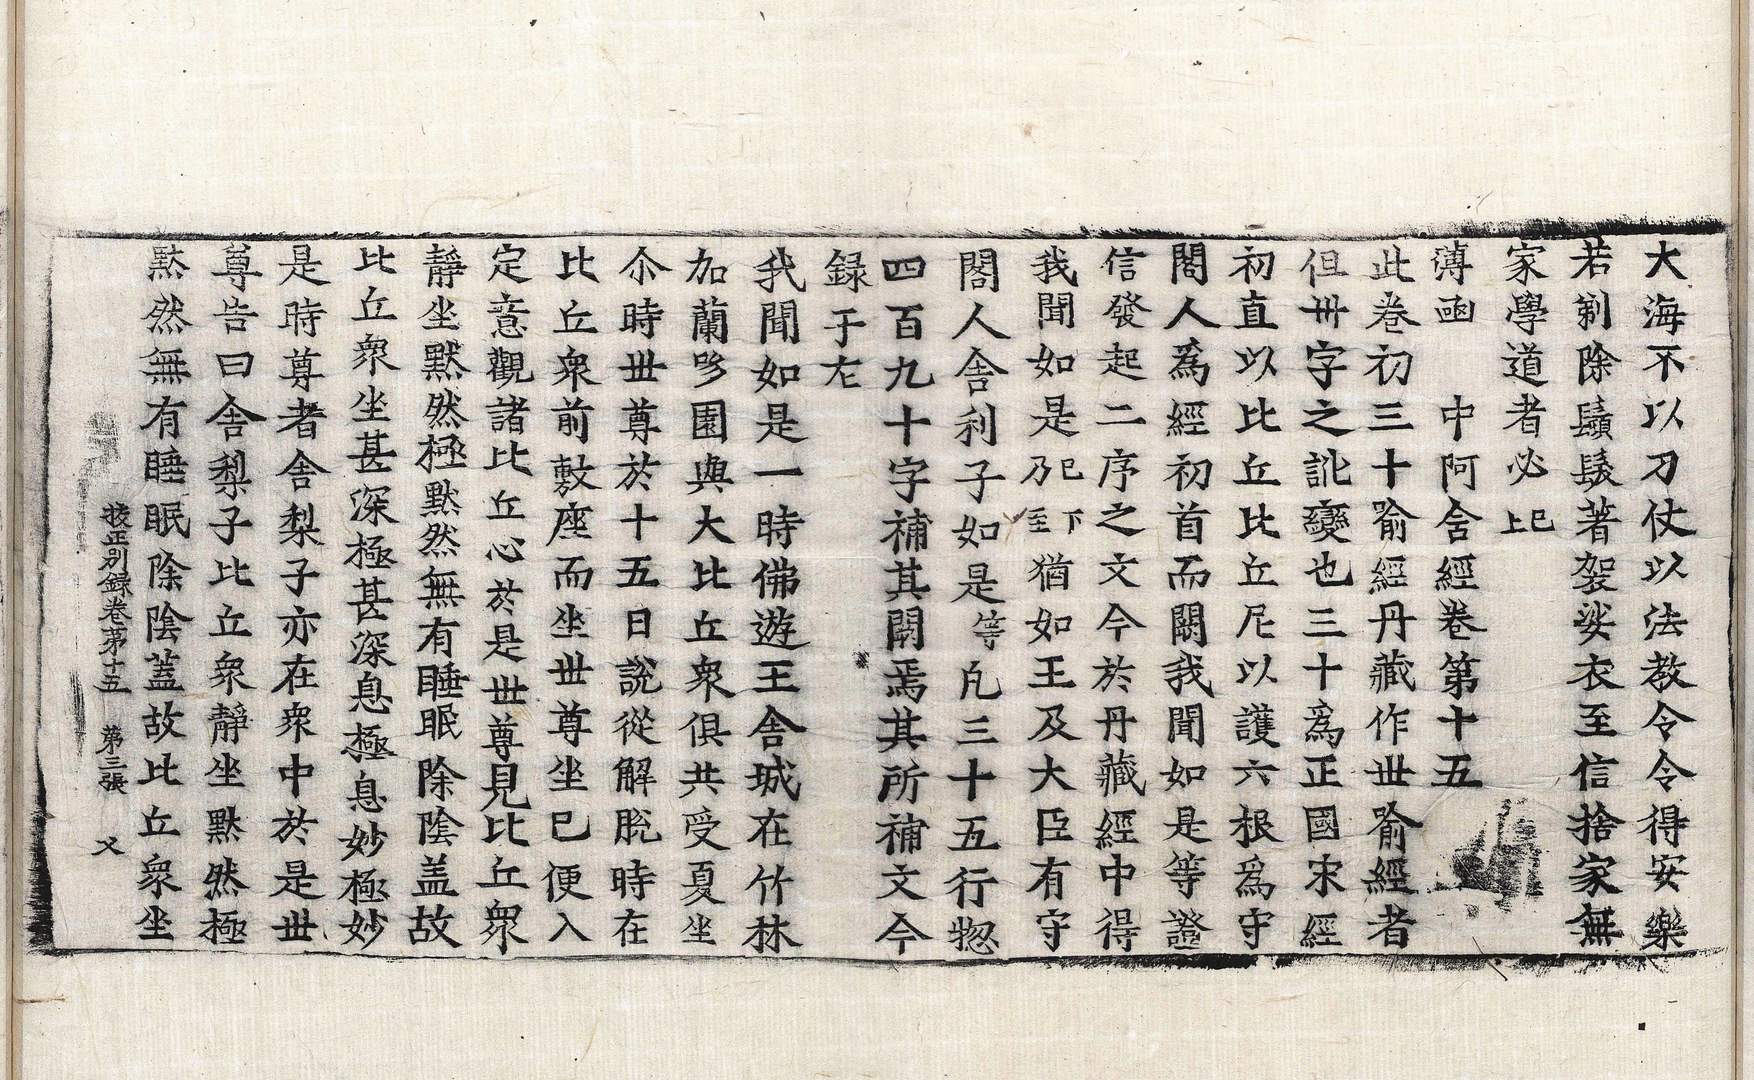 大海不以刀仗以法教令令得安樂
若剃除鬚髮著袈裟衣至信捨家無
家學道者必已上
薄函　中阿含經卷第十五
此卷初三十喻經丹藏作世喻經者
但卅字之訛變也三十爲正國宋經
初直以比丘比丘尼以護六根爲守
閤人爲經初首而闕我聞如是等證
信發起二序之文今於丹藏經中得
我聞如是已下乃至猶如王及大臣有守
閤人舍利子如是等凡三十五行惣
四百九十字補其闕焉其所補文今
録于左
我聞如是一時佛遊王舍城在竹林
加蘭哆園與大比丘衆俱共受夏坐
尒時世尊於十五日說從解脫時在
比丘衆前敷座而坐世尊坐已便入
定意觀諸比丘心於是世尊見比丘衆
靜坐默然極默然無有睡眠除陰盖故
比丘衆坐甚深極甚深息極息妙極妙
是時尊者舍梨子亦在衆中於是世
尊告曰舍梨子比丘衆靜坐默然極
默然無有睡眠除陰蓋故比丘衆坐
挍正別録卷第十五　第三張　又